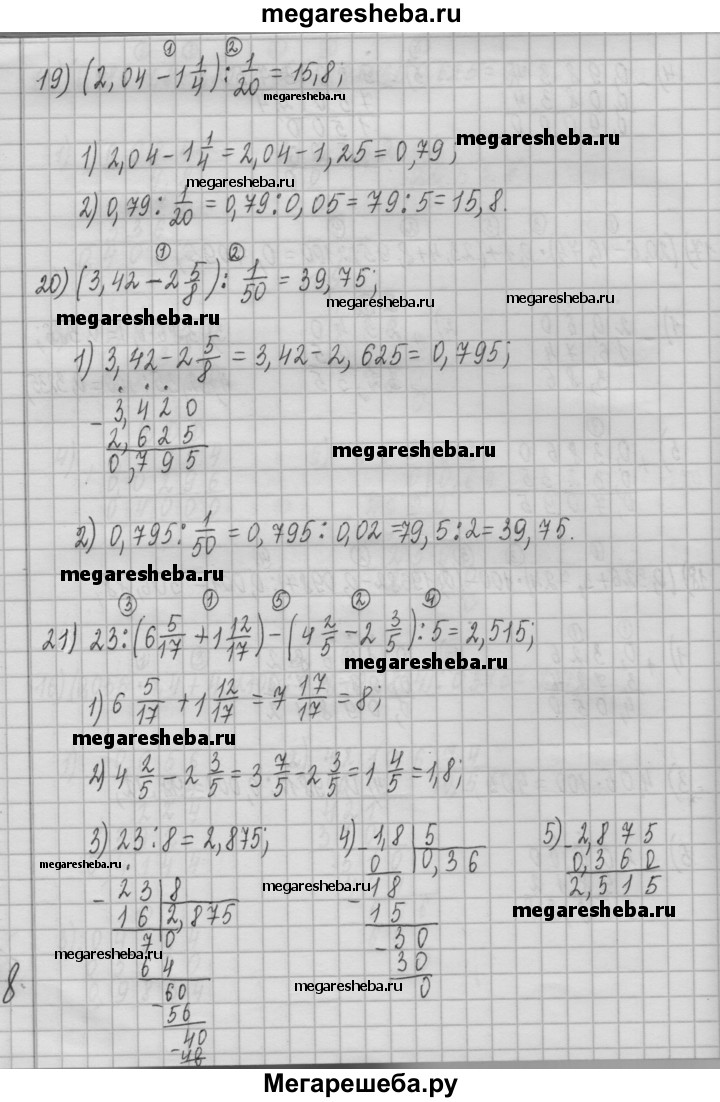 megaresheba.ru
① ②
19) (2,04 − 1 1/4) : 1/20 = 15,8;
megaresheba.ru
1) 2,04 − 1 1/4 = 2,04 − 1,25 = 0,79;
megaresheba.ru
megaresheba.ru
2) 0,79 : 1/20 = 0,79 : 0,05 = 79 : 5 = 15,8.
① ②
20) (3,42 − 2 5/8) : 1/50 = 39,75;
megaresheba.ru megaresheba.ru
megaresheba.ru
1) 3,42 − 2 5/8 = 3,42 − 2,625 = 0,795;
− 3,420
2,625
0,795
megaresheba.ru
2) 0,795 : 1/50 = 0,795 : 0,02 = 79,5 : 2 = 39,75.
megaresheba.ru
③ ① ⑤ ② ④
21) 23 : (6 5/17 + 1 12/17) − (4 2/5 − 2 3/5) : 5 = 2,515;
megaresheba.ru
1) 6 5/17 + 1 12/17 = 7 17/17 = 8;
megaresheba.ru
2) 4 2/5 − 2 3/5 = 3 7/5 − 2 3/5 = 1 4/5 = 1,8;
3) 23 : 8 = 2,875;
megaresheba.ru
− 23 | 8
16 | 2,875
70
megaresheba.ru
64
− 60
56
− 40
40
4) − 1,8 | 5
0 | 0,36
megaresheba.ru
− 18
15
− 30
30
0
megaresheba.ru
5) − 2,875
0,360
2,515
megaresheba.ru
8.
Мегарешеба.ру